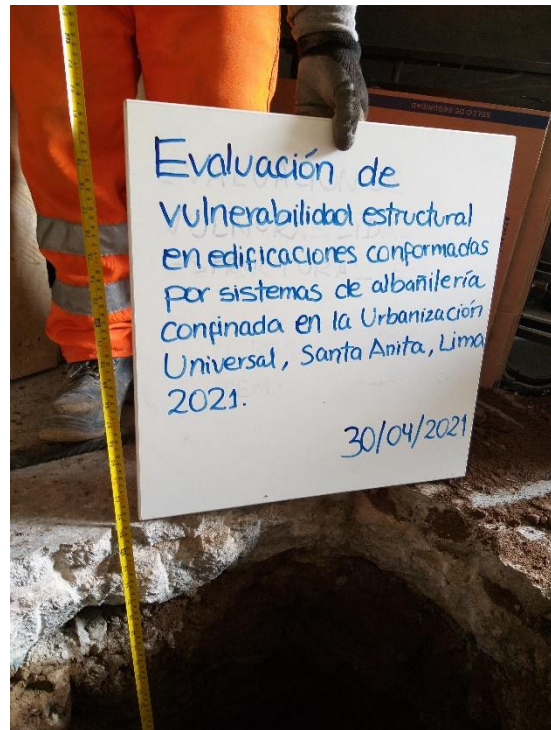 SELLO DE SEGURIDAD
Evaluación de
vulnerabilidad estructural
en edificaciones conformadas
por sistemas de albañilería
confinada en la Urbanización
Universal, Santa Anita, Lima
2021.
30/04/2021